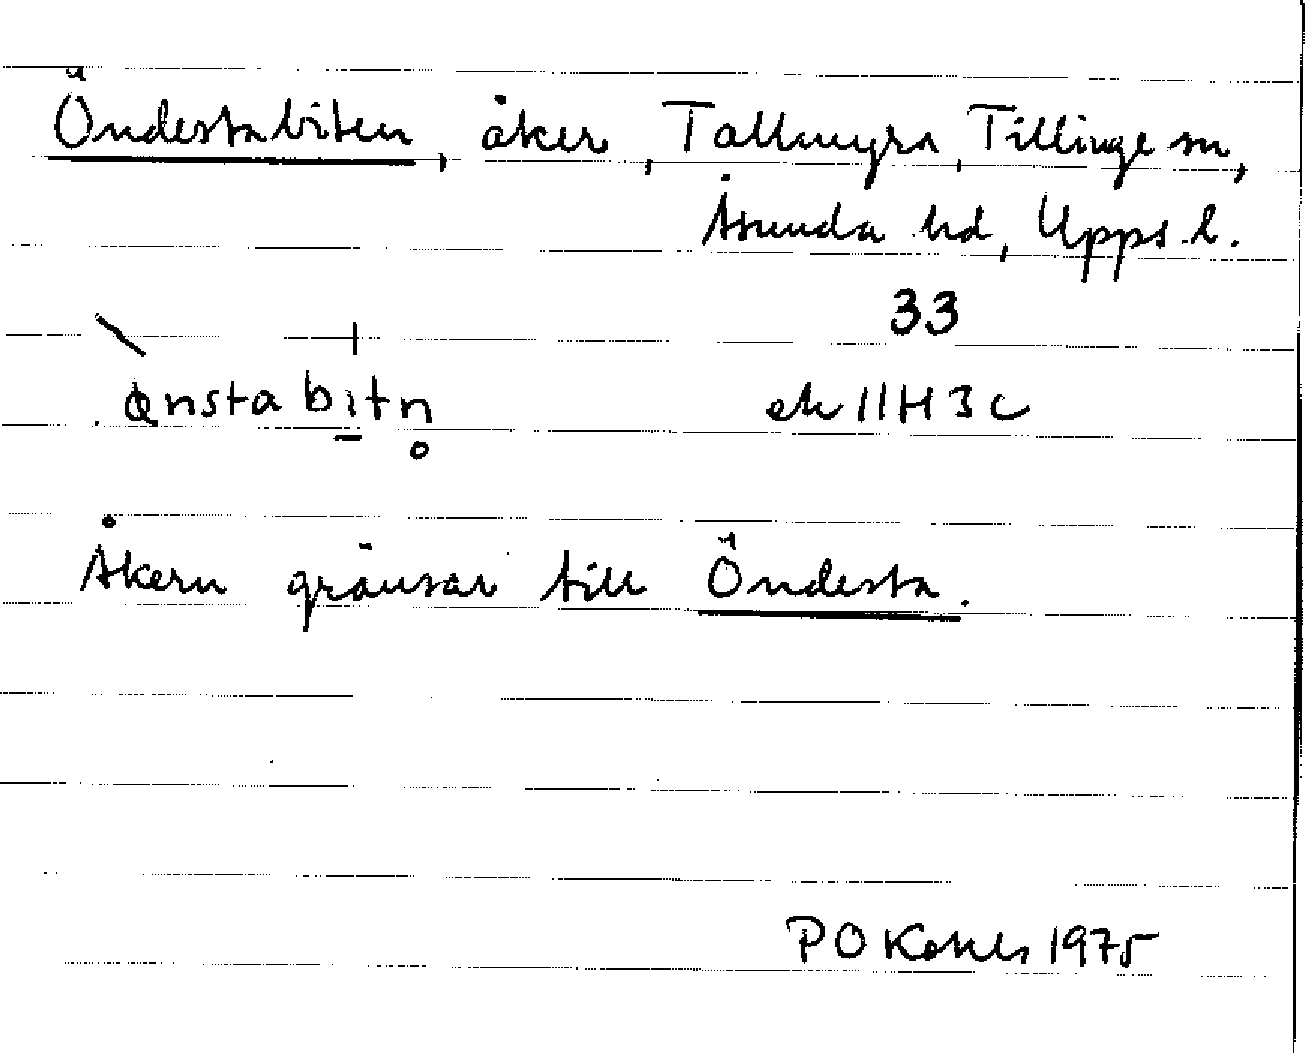 Öndestabiten, åker, Tallmyra, Tillinge sn,
Åsunda hd, Upps. l.
33
ek 11H3c
Åkern gränsar till Öndesta.
1975